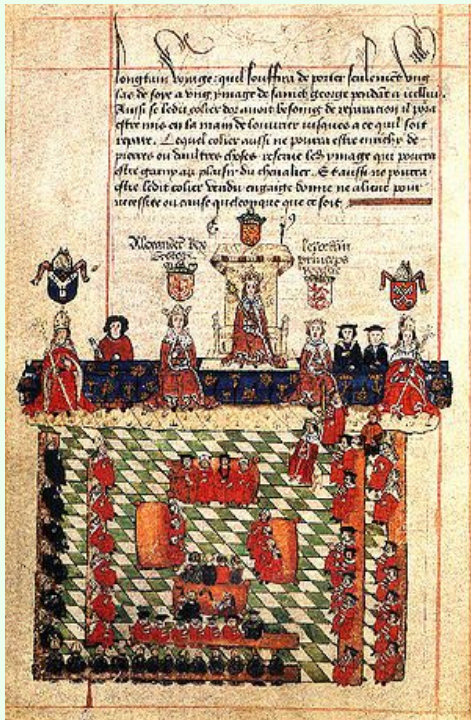 longtain voyage: quel souffira de porter seulement ung
las de soye a ung ymage de sainct george pendāt a icelluy.
Aussi se ledit colier dor auoit besoing de reparacion il pora
estre mis en la main de louurier iusques a ce quil soit
repare. Lequel colier aussi ne pourra estre enrichy de
pierres ou daultres choses reserue led ymage qui pourra
estre garny au plaisir du cheualier. Et aussi ne pourra
estre ledit colier vendu engaige donne ne aliene pour
necessite ou cause quelconque que ce soit.
Alexander Rex
princeps